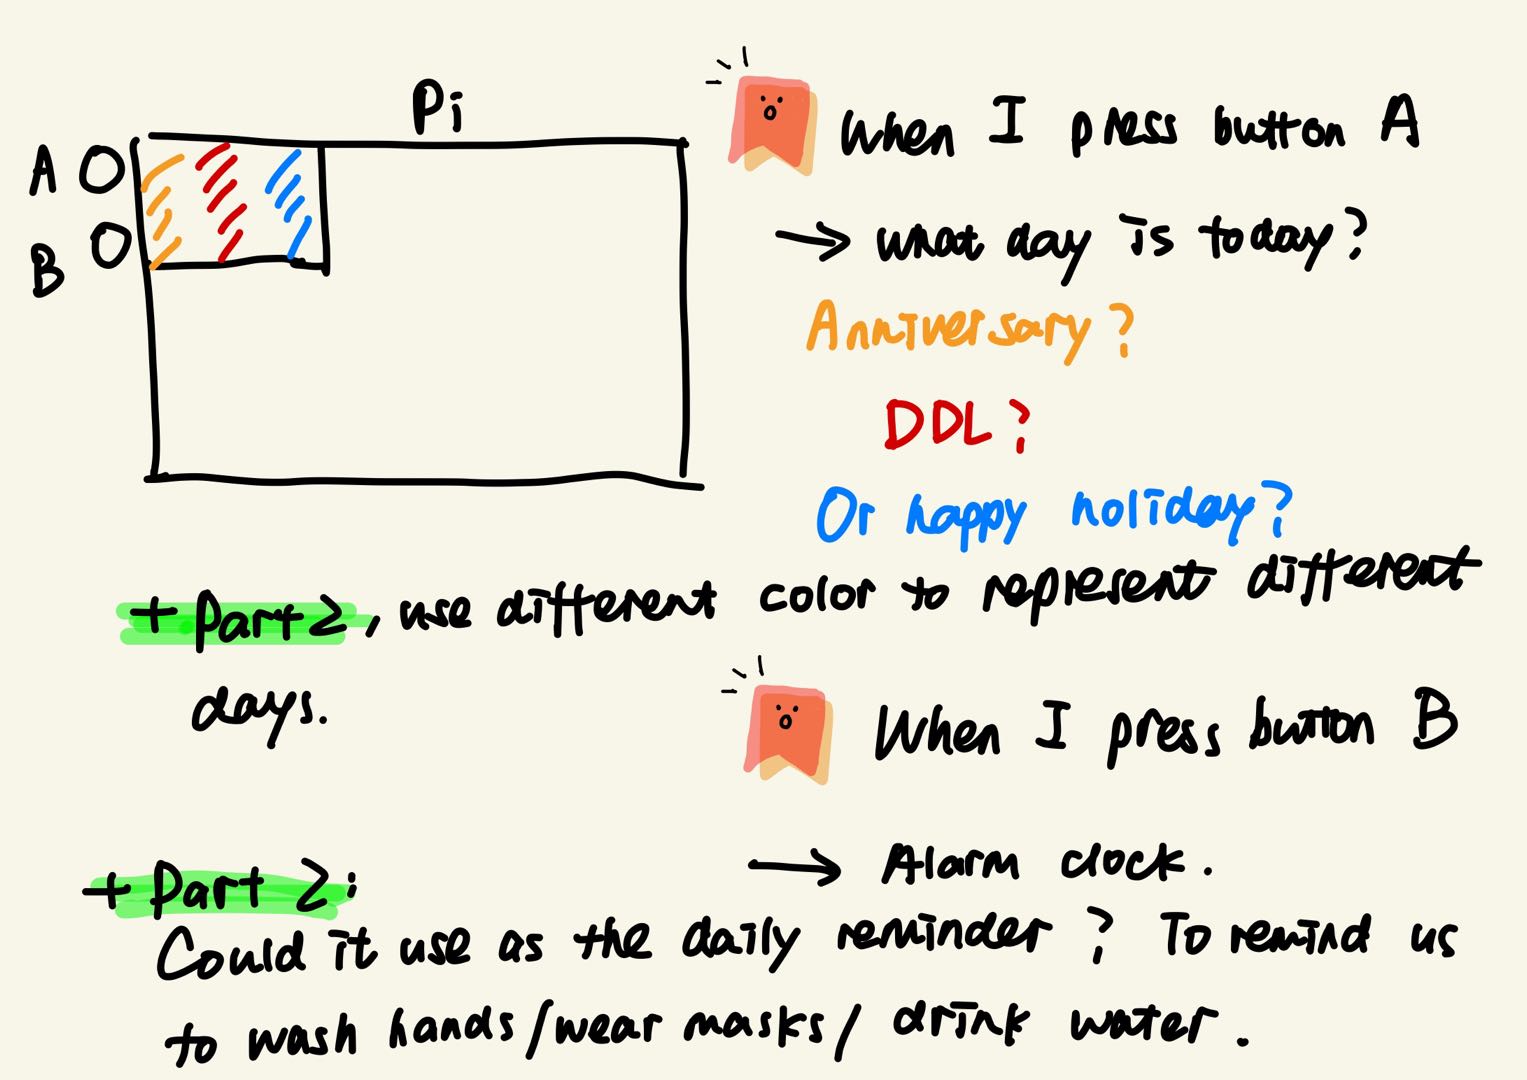 Pi
A
B
When I press button A
→ what day is today?
Anniversary?
DDL?
Or happy holiday?
+ Part 2, use different color to represent different
days.
When I press button B
→ Alarm clock.
+ Part 2:
Could it use as the daily reminder? To remind us
to wash hands/wear masks/ drink water.